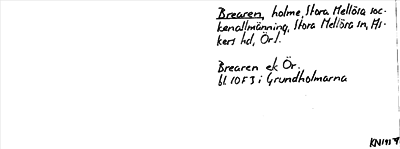 Brearen, holme, Stora Mellösa soc-
kenallmänning, Stora Mellösa sn, As-
kers hd, Örl.
Brearen ek Ör.
bl 10F3j Grundholmarna